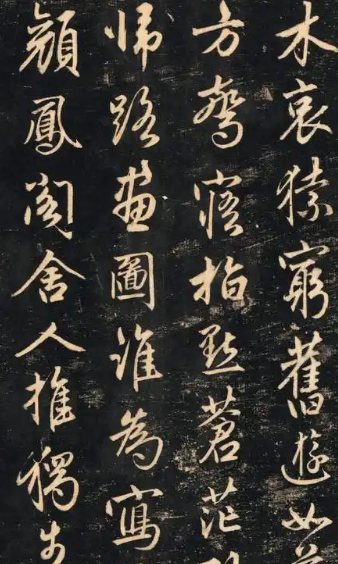 木哀猿窮舊遊如
方驚寤指點蒼茫
歸路畫圖誰為寫
顏鳳閣舍人推獨步